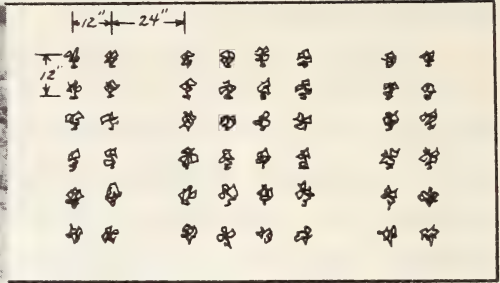 12" 24"
12"